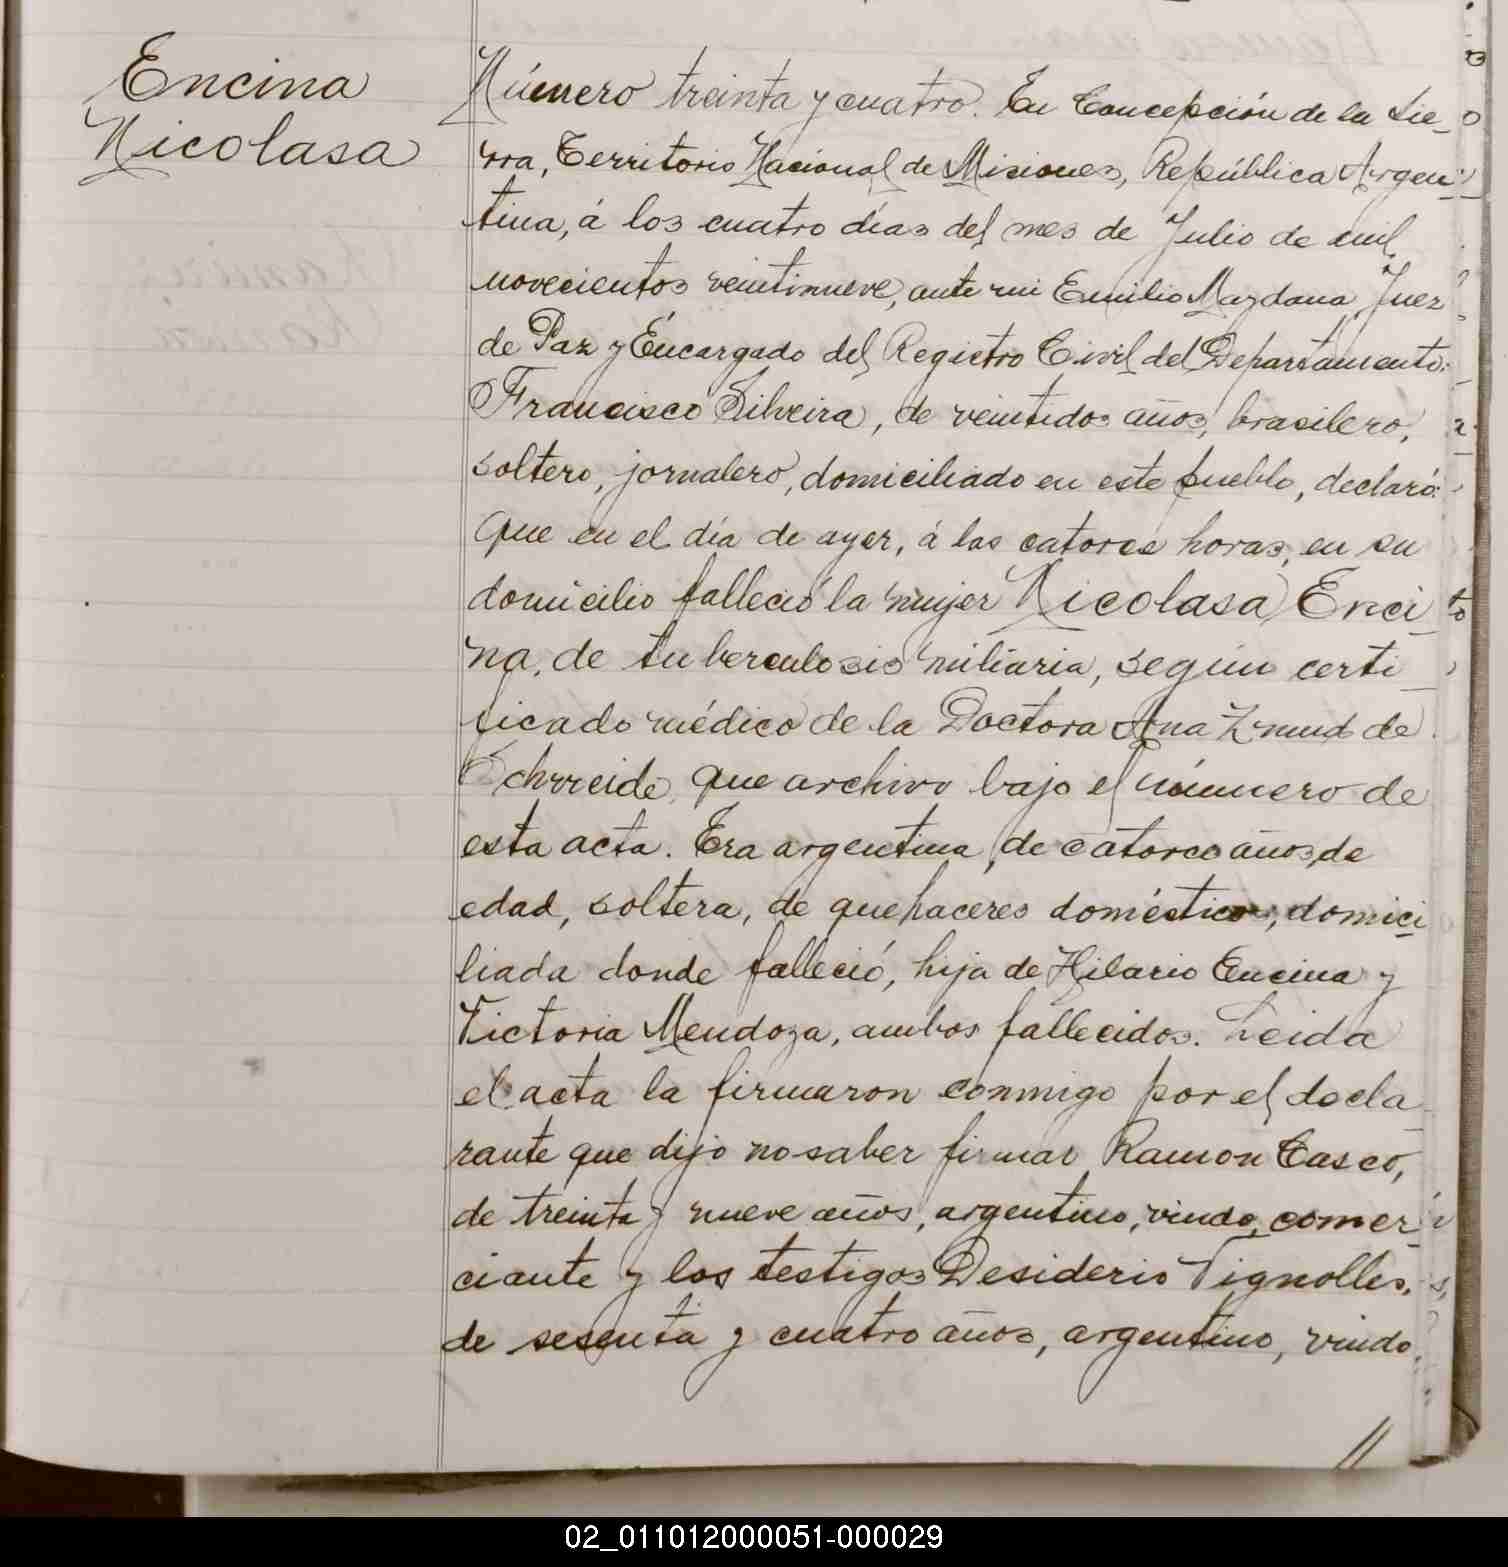 Encina
Nicolasa
Número treinta y cuatro. En Concepción de la Sie-
rra, Territorio Nacional de Misiones, República Argen-
tina, á los cuatro días del mes de Julio de mil
novecientos veintinueve, ante mi Emilio Maydana, Juez
de Paz y Encargado del Registro Civil del Departamento:
Francisco Silveira, de veintidos años, brasilero,
soltero, jornalero, domiciliado en este pueblo, declaró:
Que en el día de ayer, á las catorce horas, en su
domicilio falleció la mujer Nicolasa Enci-
na, de tuberculosis miliaria, según certi-
ficado médico de la Doctora Ana Zmud de
Schrreide, que archivo bajo el número de
esta acta. Era argentina, de catorce años de
edad, soltera, de quehaceres domésticos, domici-
liada donde falleció, hija de Hilario Encina y
Victoria Mendoza, ambos fallecidos. Leida
el acta la firmaron conmigo por el decla-
rante que dijo no saber firmar Ramon Casco,
de treinta y nueve años, argentino, viudo, comer-
ciante y los testigos Desiderio Vignolles,
de sesenta y cuatro años, argentino, viudo,
//
02_011012000051-000029